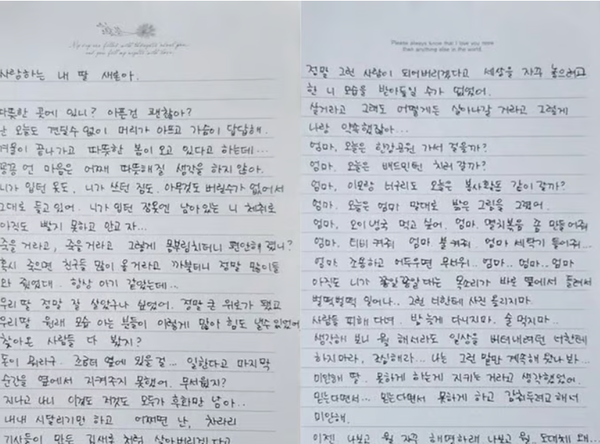 사랑하는 내 딸 새론아.
따뜻한 곳에 있니? 아픈건 괜찮아?
난 오늘도 견딜수 없이 머리가 아프고 가슴이 답답해.
겨울이 끝나가고 따뜻한 봄이 오고 있다고 하는데...
꽁꽁 언 마음은 어째 따뜻해질 생각을 하지 않아.
니가 입던 옷도, 니가 쓰던 짐도, 아무것도 버릴수가 없어서
그대로 들고 있어. 니가 입던 잠옷엔 남아있는 니 체취로
아직도 빨지 못하고 안고 자...
죽을거라고, 죽을거라고 그렇게 몸부림치더니 편안해 졌니?
혹시 죽으면 친구들 많이 올거라고 까불더니 정말 많이들
와 줬었대. 항상 이기 같았는데...
우리 딸 정말 잘 살았구나 싶었어. 정말 큰 위로가 됐고
우리딸 원래 모습 아는 분들이 이렇게 많아 힘도 낼수 있었어
찾아온 사람들 다 봤지?
돈이 뭐라구. 조금더 옆에 있을 걸... 일한다고 마지막
순간을 옆에서 지켜주지 못했어. 무서웠지?
지나고 나니 이것도 저것도 모두가 후회만 남아..
내내 시달리기만 하고 어쩌면 난, 차라리
기사들이 만든 김새론 처럼 살아버리겠다고
Please always know that I love you more
than anything else in the world.
정말 그런 사람이 되어버리겠다고 세상을 자꾸 놓으려고
한 니 모습을 받아들일 수가 없었어.
살거라고 그래도 어떻게든 살아나갈 거라고 그렇게
나랑 약속했잖아...
엄마, 오늘은 한강공원 가서 걸을까?
엄마, 오늘은 배드민턴 치러 갈까?
엄마, 이모랑 버무리도 오늘은 봉사활동 같이 갈까?
엄마. 오늘은 엄마 말대로 밝은 그림을 그렸어.
엄마, 오이냉국 먹고 싶어. 엄마. 멸치볶음 좀 만들어줘
엄마, 티비 켜줘 엄마 불켜줘 엄마 세탁기 돌려줘...
엄마 조용하고 어두우면 무서워.. 엄마.. 엄마.. 엄마
아직도 니가 꼬알꼬알대는 목소리가 바로 옆에서 들려서
벌떡벌떡 일어나.. 그런 너한테 사진 올리지마.
사람들 피해 다녀. 밝게 다니지마. 술 먹지마...
생각해 보니 뭘 해서라도 일상을 버텨내려던 너한테
하지마라, 조심해라... 나는 그런 말만 계속해 왔나 봐...
미안해 딸. 못하게 하는게 지키는 거라고 생각했었어.
믿는다면서... 믿는다면서 못하게 하고 감춰두려고 해서
미안해.